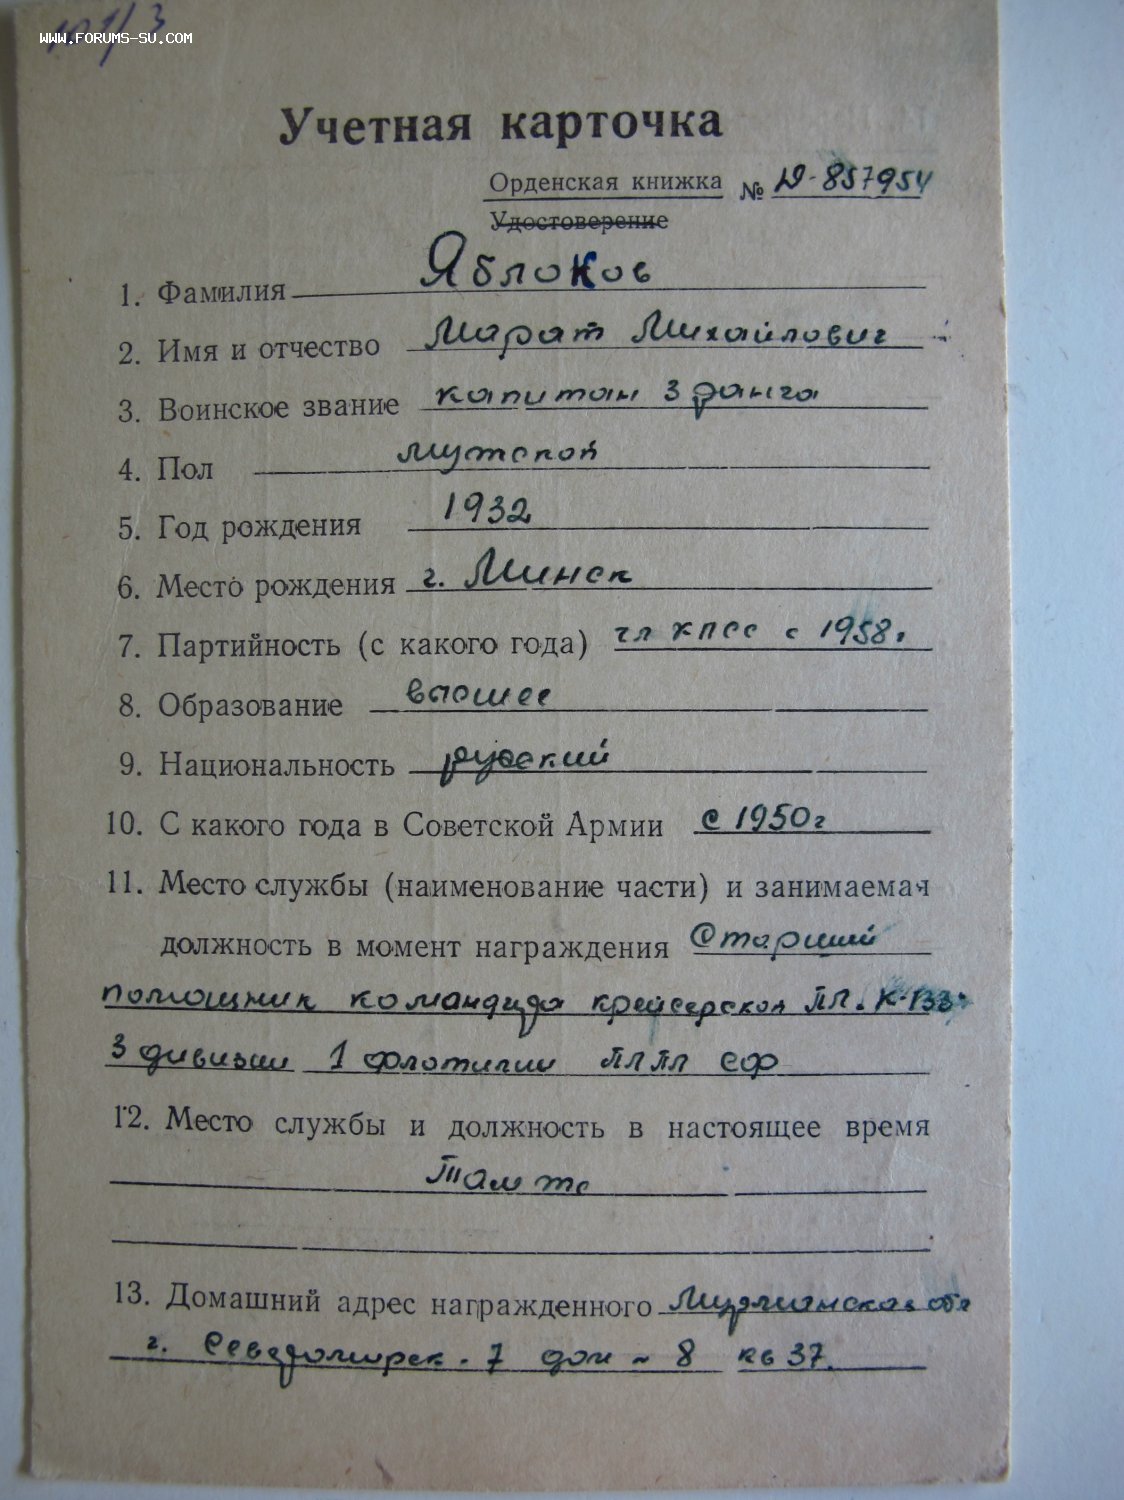 www.forums-su.com
Учетная карточка
Орденская книжка № Д-857954
Удостоверение
1. Фамилия Яблоков
2. Имя и отчество Марат Михайлович
3. Воинское звание капитан 3 ранга
4. Пол мужской
5. Год рождения 1932
6. Место рождения г. Минск
7. Партийность (с какого года) чл КПСС с 1958г
8. Образование высшее
9. Национальность русский
10. С какого года в Советской Армии с 1950г
11. Место службы (наименование части) и занимаемая
должность в момент награждения Старший
помощник командира крейсерской ПЛ. К-133
3 дивизии 1 флотилии ПЛПЛ СФ
12. Место службы и должность в настоящее время
Там же
13. Домашний адрес награжденного Мурманская обл
г. Североморск-7 дом 8 кв 37.